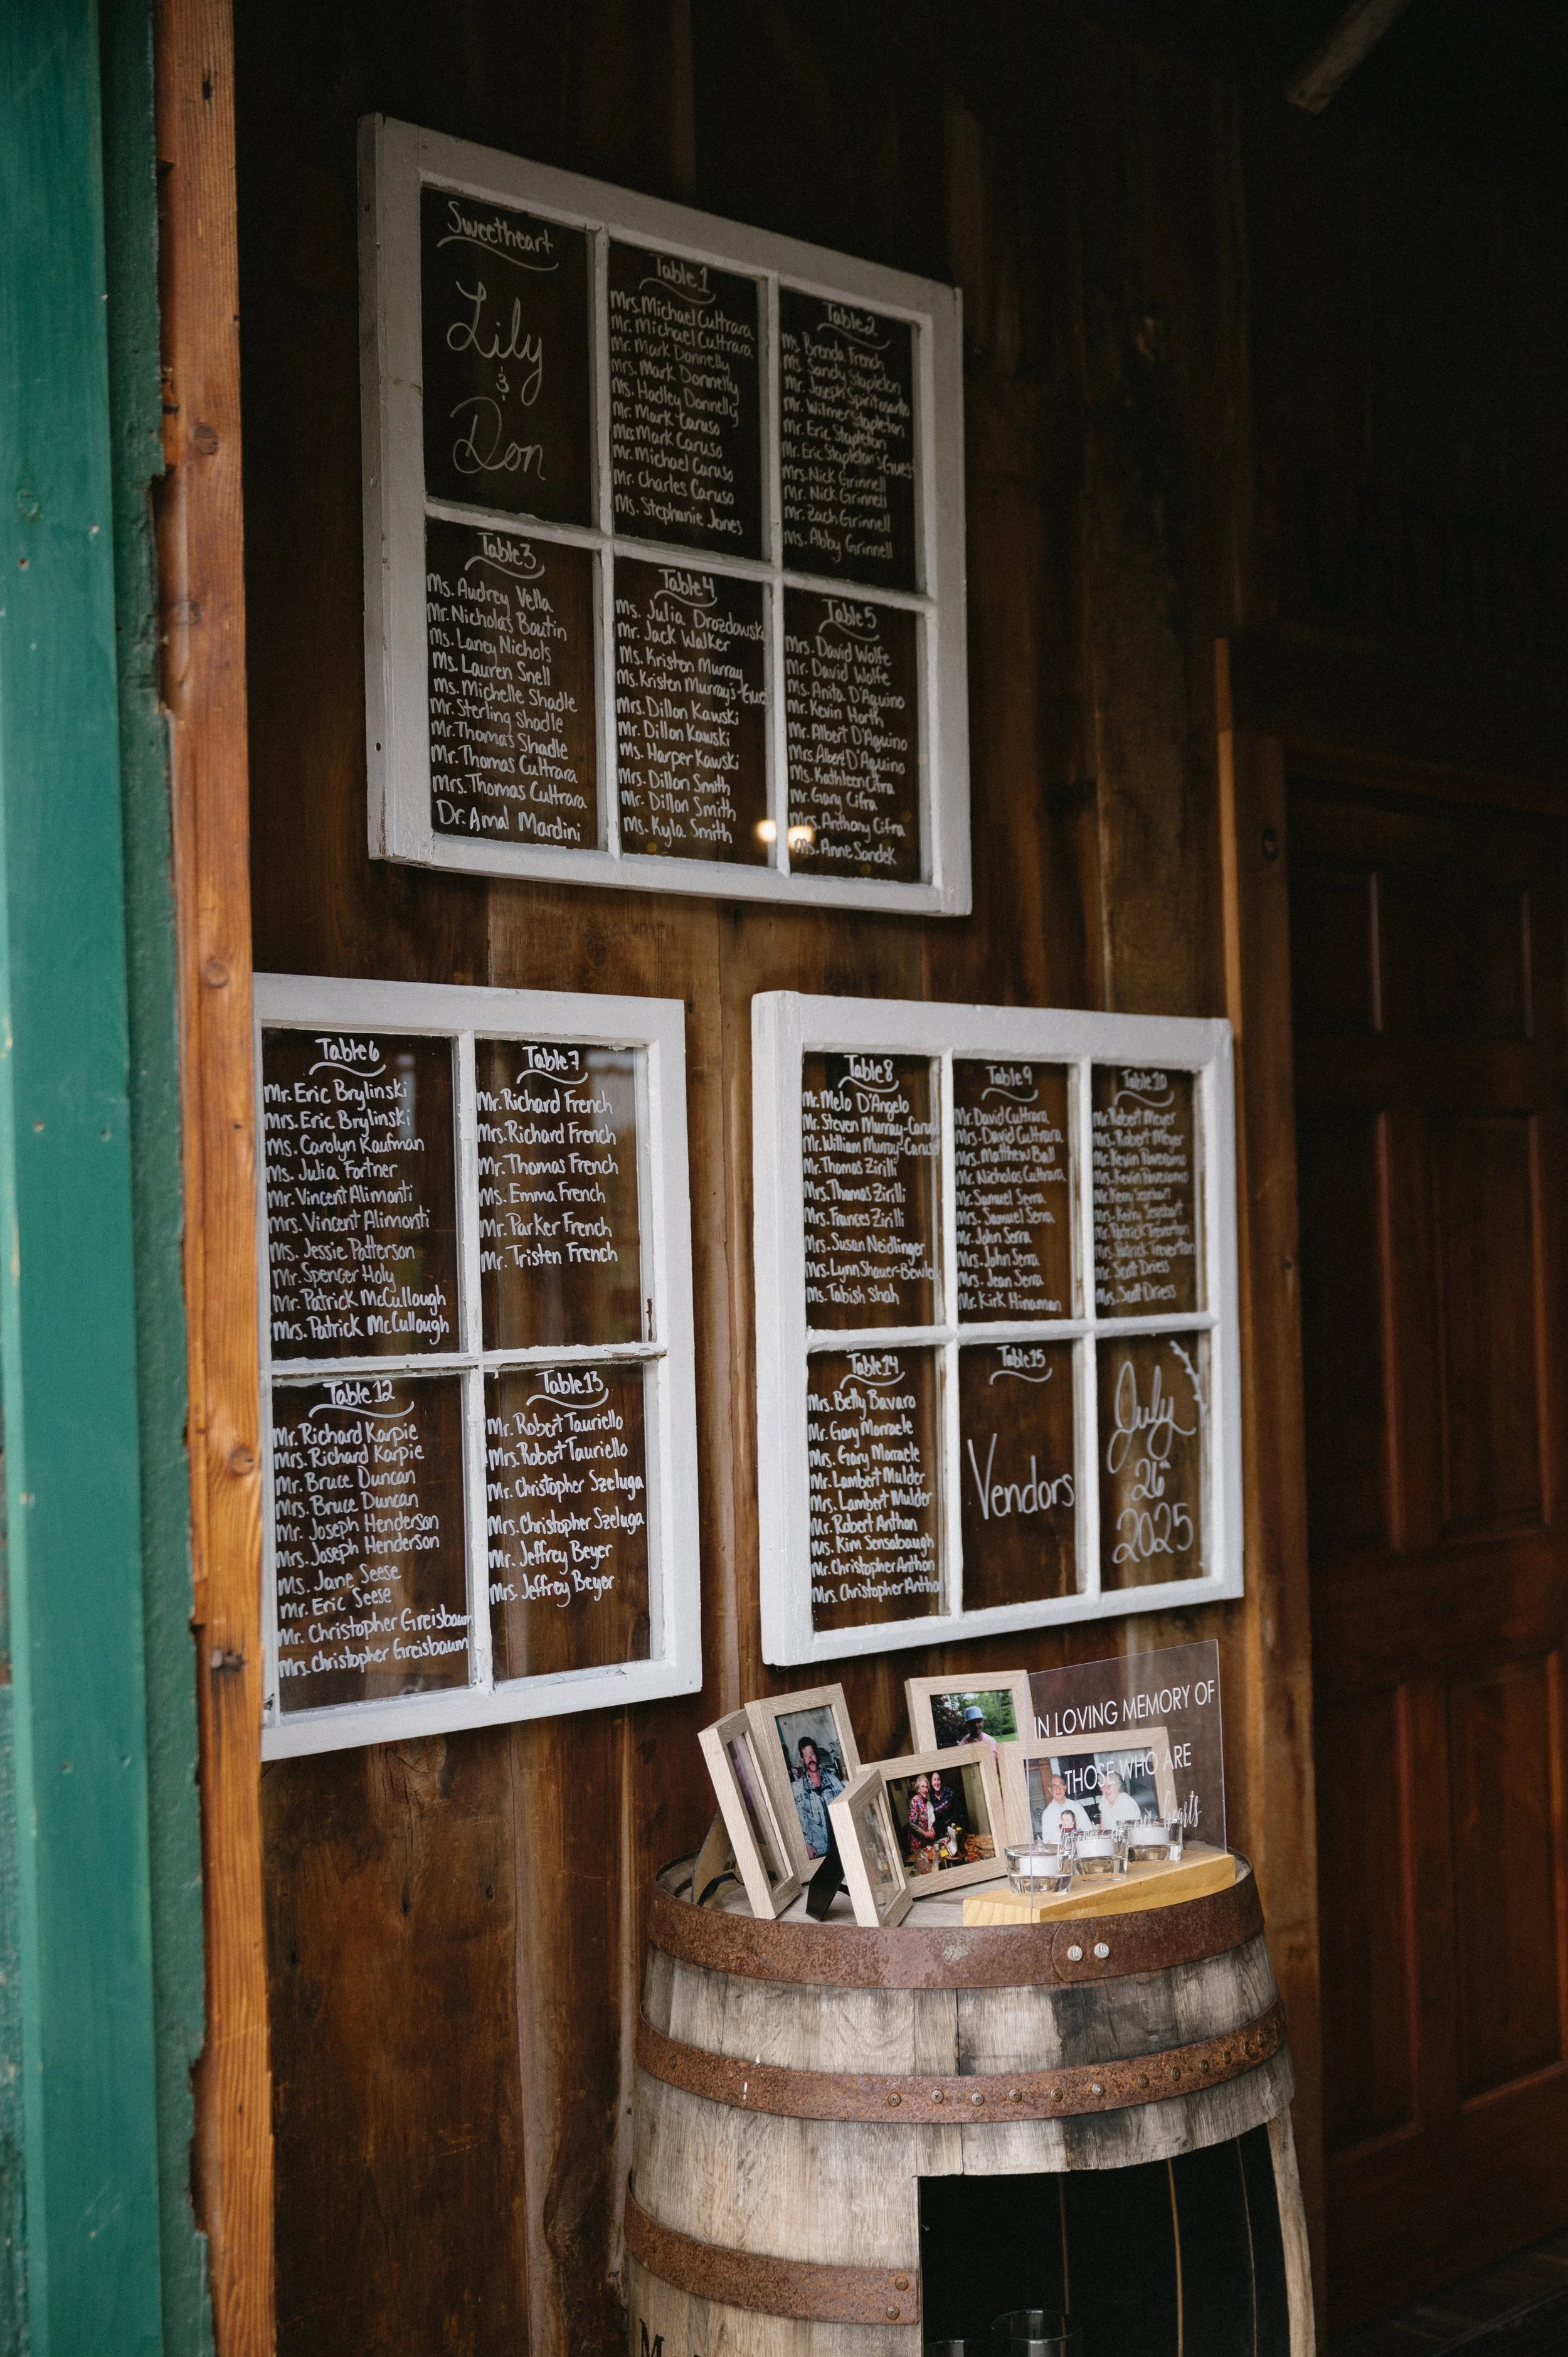 Sweetheart
Lily
&
Don
Table 1
Mrs. Michael Cultrara
Mr. Michael Cultrara
Mr. Mark Donnelly
Mrs. Mark Donnelly
Ms. Hadley Donnelly
Mr. Mark Caruso
Mrs Mark Caruso
Mr. Michael Caruso
Mr. Charles Caruso
Ms. Stephanie Jones
Table 2
Ms. Brenda French
Ms. Sandy Stapleton
Mr. Joseph
Mr. Wilmer Stapleton
Mr. Eric Stapleton
Mr. Eric Stapleton's Guest
Mrs. Nick Grinnell
Mr. Nick Grinnell
Mr. Zach Grinnell
Ms. Abby Grinnell
Table 3
Ms. Audrey Vella
Mr. Nicholas Boutin
Ms. Laney Nichols
Ms. Lauren Snell
Ms. Michelle Shadle
Mr. Sterling Shadle
Mr. Thomas Shadle
Mr. Thomas Cultrara
Mrs. Thomas Cultrara
Dr. Amal Mardini
Table 4
Ms. Julia Drozdowski
Mr. Jack Walker
Ms. Kristen Murray
Ms. Kristen Murray's Gue
Mrs. Dillon Kawski
Mr. Dillon Kawski
Ms. Harper Kawski
Mrs. Dillon Smith
Mr. Dillon Smith
Ms. Kyla Smith
Table 5
Mrs. David Wolfe
Mr. David Wolfe
Ms. Anita D'Aquino
Mr. Kevin Horth
Mr. Albert D'Aquino
Mrs. Albert D'Aquino
Ms. Kathleen Cifra
Mr. Gary Cifra
Mrs. Anthony Cifra
Ms. Anne Sandek
Table 6
Mr. Eric Brylinski
Mrs. Eric Brylinski
Ms. Carolyn Kaufman
Ms. Julia Fortner
Mr. Vincent Alimonti
Mrs. Vincent Alimonti
Ms. Jessie Patterson
Mr. Spencer Holy
Mr. Patrick McCullough
Mrs. Patrick McCullough
Table 7
Mr. Richard French
Mrs. Richard French
Mr. Thomas French
Ms. Emma French
Mr. Parker French
Mr. Tristen French
Table 12
Mr. Richard Karpie
Mrs. Richard Karpie
Mr. Bruce Duncan
Mrs. Bruce Duncan
Mr. Joseph Henderson
Mrs. Joseph Henderson
Ms. Jane Seese
Mr. Eric Seese
Mr. Christopher Greisbaum
Mrs. Christopher Greisbaum
Table 13
Mr. Robert Tauriello
Mrs. Robert Tauriello
Mr. Christopher Szeluga
Mrs. Christopher Szeluga
Mr. Jeffrey Beyer
Mrs. Jeffrey Beyer
Table 8
Mr. Melo D'Angelo
Mr. Steven Murray-Caruso
Mr. William Murray-Caruso
Mr. Thomas Zirilli
Mrs. Thomas Zirilli
Mrs. Frances Zirilli
Mrs. Susan Neidlinger
Mrs. Lynn Shauer-Bewley
Ms. Tabish Shah
Table 9
Mr. David Cultrara
Mrs. David Cultrara
Mrs. Matthew Ball
Mr. Nicholas Cultrara
Mr. Samuel Serra
Mrs. Samuel Serra
Mr. John Serra
Mrs. John Serra
Mrs. Jean Serra
Mr. Kirk Hinaman
Table 10
Mr. Robert Meyer
Mrs. Robert Meyer
Mr. Kevin
Mrs. Kevin
Mr. Kerry
Mrs. Kerry
Mr. Patrick Treverton
Mrs. Patrick Treverton
Mr. Scott Driess
Mrs. Scott Driess
Table 14
Mrs. Betty Bavaro
Mr. Gary Marraele
Mrs. Gary Marraele
Mr. Lambert Mulder
Mrs. Lambert Mulder
Mr. Robert Anthon
Ms. Kim Sensabaugh
Mr. Christopher Anthon
Mrs. Christopher Antho
Table 15
Vendors
July
26th
2025
IN LOVING MEMORY OF
THOSE WHO ARE
hearts